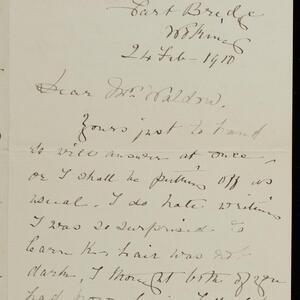 East Bridge
24 Feb - 1910
Dear Mrs Waldow.
Yours just to hand
so will answer at once
or I shall be putting off as
usual. I do hate writing
I was so surprised to
learn K's hair was not
dark, I thought both of you
had